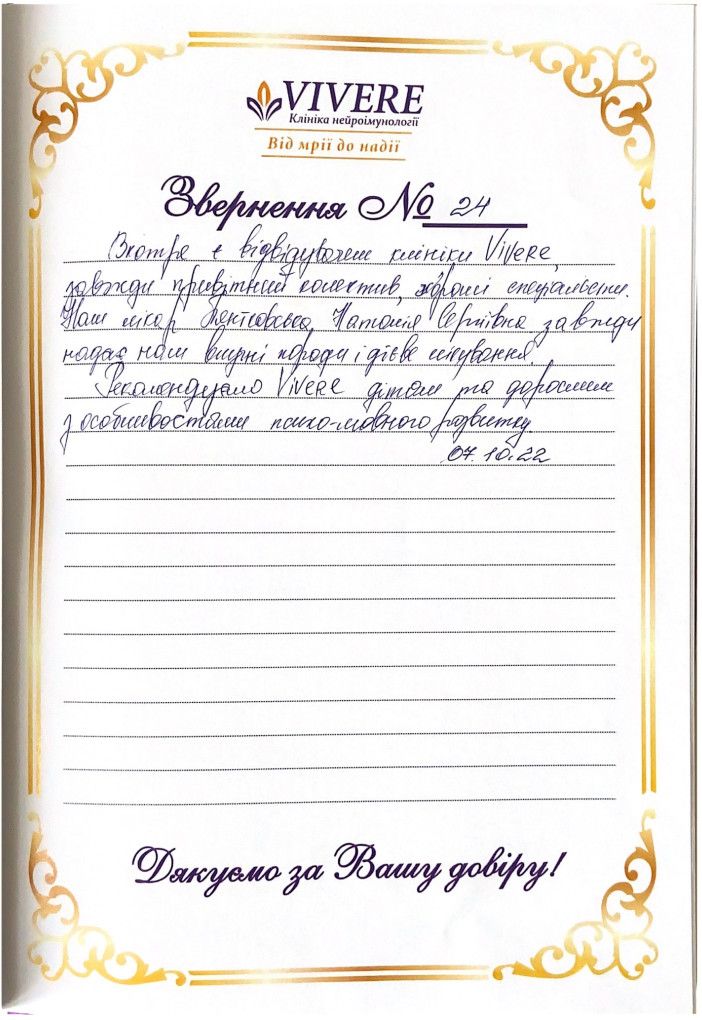 VIVERE
Клініка нейроімунології
Від мрії до надії
Звернення № 24
Вкотре є відвідувачем клініки Vivere,
завжди привітний колектив, хороші спеціалісти.
Наш лікар Наталія Сергіївна завжди
надає нам влучні поради і дієве лікування.
Рекомендуємо Vivere дітям та дорослим
з особливостями психо-мовного розвитку
07.10.22
Дякуємо за Вашу довіру!